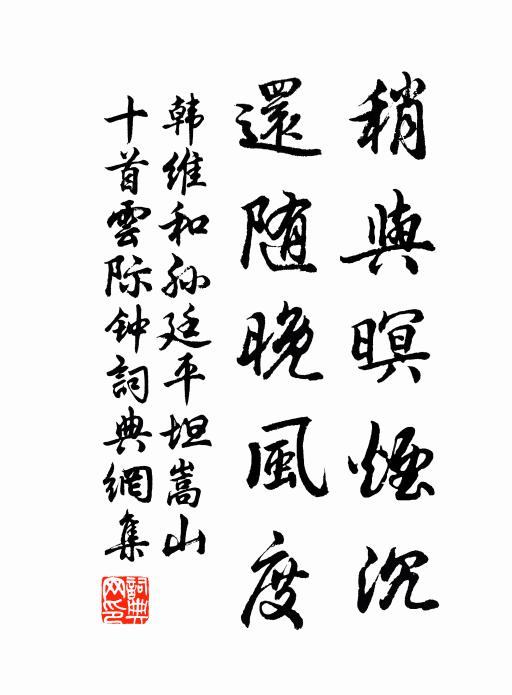 稍與暝煙沉
還随晚風度
韩維和孙廷平坦嵩山
十首雲际钟詞典網集
詞典网印